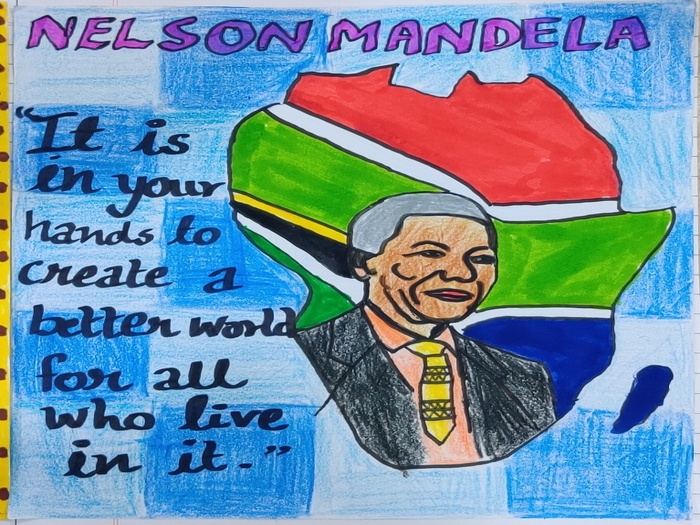 NELSON MANDELA
"It is
in your
hands to
create a
better world
for all
who live
in it."